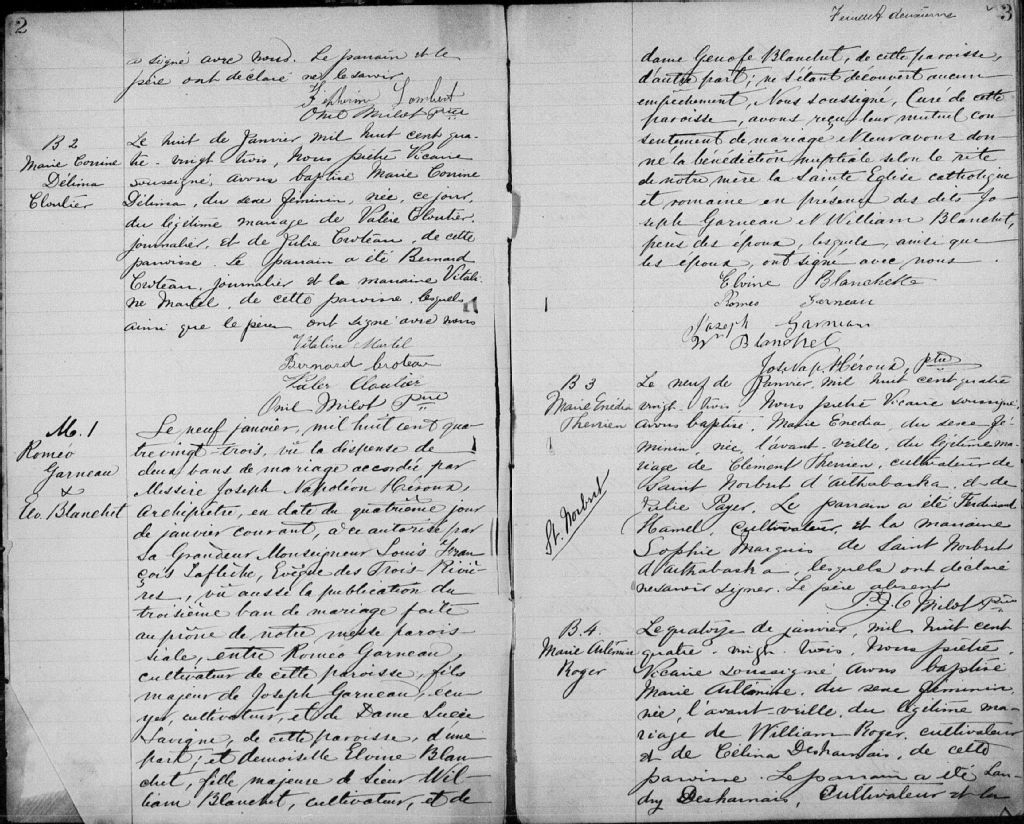 2
a signé avec nous. Le parrain et le
père ont déclaré ne le savoir
Zephirin Lambert
Onil Milot Ptre
B 2
Marie Corrine
Délima
Cloutier
Le huit de Janvier mil huit cent qua-
tre-vingt trois, Nous prêtre Vicaire
soussigné, avons baptisé Marie Corrine
Délima, du sexe féminin, née, ce jour,
du légitime mariage de Valère Cloutier,
journalier, et de Julie Croteau, de cette
paroisse. Le parrain a été Bernard
Croteau, journalier et la marraine Vitali-
ne Martel, de cette paroisse, lesquels
ainsi que le père ont signé avec nous
Vitaline Martel
Bernard Croteau
Valer Cloutier
Onil Milot Ptre
M. 1
Romeo
Garneau
&
Elv. Blanchet
Le neuf janvier, mil huit cent qua-
tre vingt-trois, vû la dispense de
deux bans de mariage accordée par
Messire Joseph Napoléon Héroux,
Archiprêtre, en date du quatrième jour
de janvier courant, à ce autorisé par
Sa Grandeur Monseigneur Louis Fran-
çois Laflèche, Evêque des Trois Riviè-
res, vû aussi la publication du
troisième ban de mariage faite
au prône de notre messe parois-
siale, entre Roméo Garneau,
cultivateur de cette paroisse, fils
majeur de Joseph Garneau, écu-
yer, cultivateur, et de Dame Lucie
Lavigne, de cette paroisse, d'une
part; et demoiselle Elvine Blan-
chet, fille majeure de Sieur Wil-
liam Blanchet, cultivateur, et de
Feuillet deuxième
3
dame Genofe Blanchet, de cette paroisse,
d'autre part; ne s'étant découvert aucun
empêchement, Nous soussigné, Curé de cette
paroisse, avons reçu leur mutuel con
sentement de mariage et leur avons don
né la bénédiction nuptiale selon le rite
de notre mère la Sainte Eglise catholique
et romaine en présence des dits Jo-
seph Garneau et William Blanchet,
pères des époux, lesquels, ainsi que
les époux, ont signé avec nous.
Elvine Blanchette
Romeo Garneau
Joseph Garneau
Wm Blanchet
Jos. Nap. Héroux, ptre
B 3
Marie Enédia
Therrien
St. Norbert
Le neuf de Janvier, mil huit cent quatre
vingt-trois, Nous prêtre Vicaire soussigné
avons baptisé, Marie Enedia, du sexe fé-
minin, née, l'avant-veille, du légitime ma-
riage de Clément Therrien, cultivateur de
Saint Norbert d'Arthabaska, et de
Julie Payer. Le parrain a été Ferdinand
Hamel, cultivateur, et la marraine
Sophie Marquis de Saint Norbert
d'Arthabaska, lesquels ont déclaré
ne savoir signer. Le père absent
Milot Ptre
B. 4.
Marie Artémise
Roger
Le quatorze de janvier, mil huit cent
quatre-vingt-trois, Nous prêtre,
Vicaire soussigné avons baptisé
Marie Artémise, du sexe féminin,
née, l'avant-veille, du légitime ma-
riage de William Roger, cultivateur
et de Célina Desharnais, de cette
paroisse. Le parrain a été Lan-
dry Desharnais, cultivateur et la